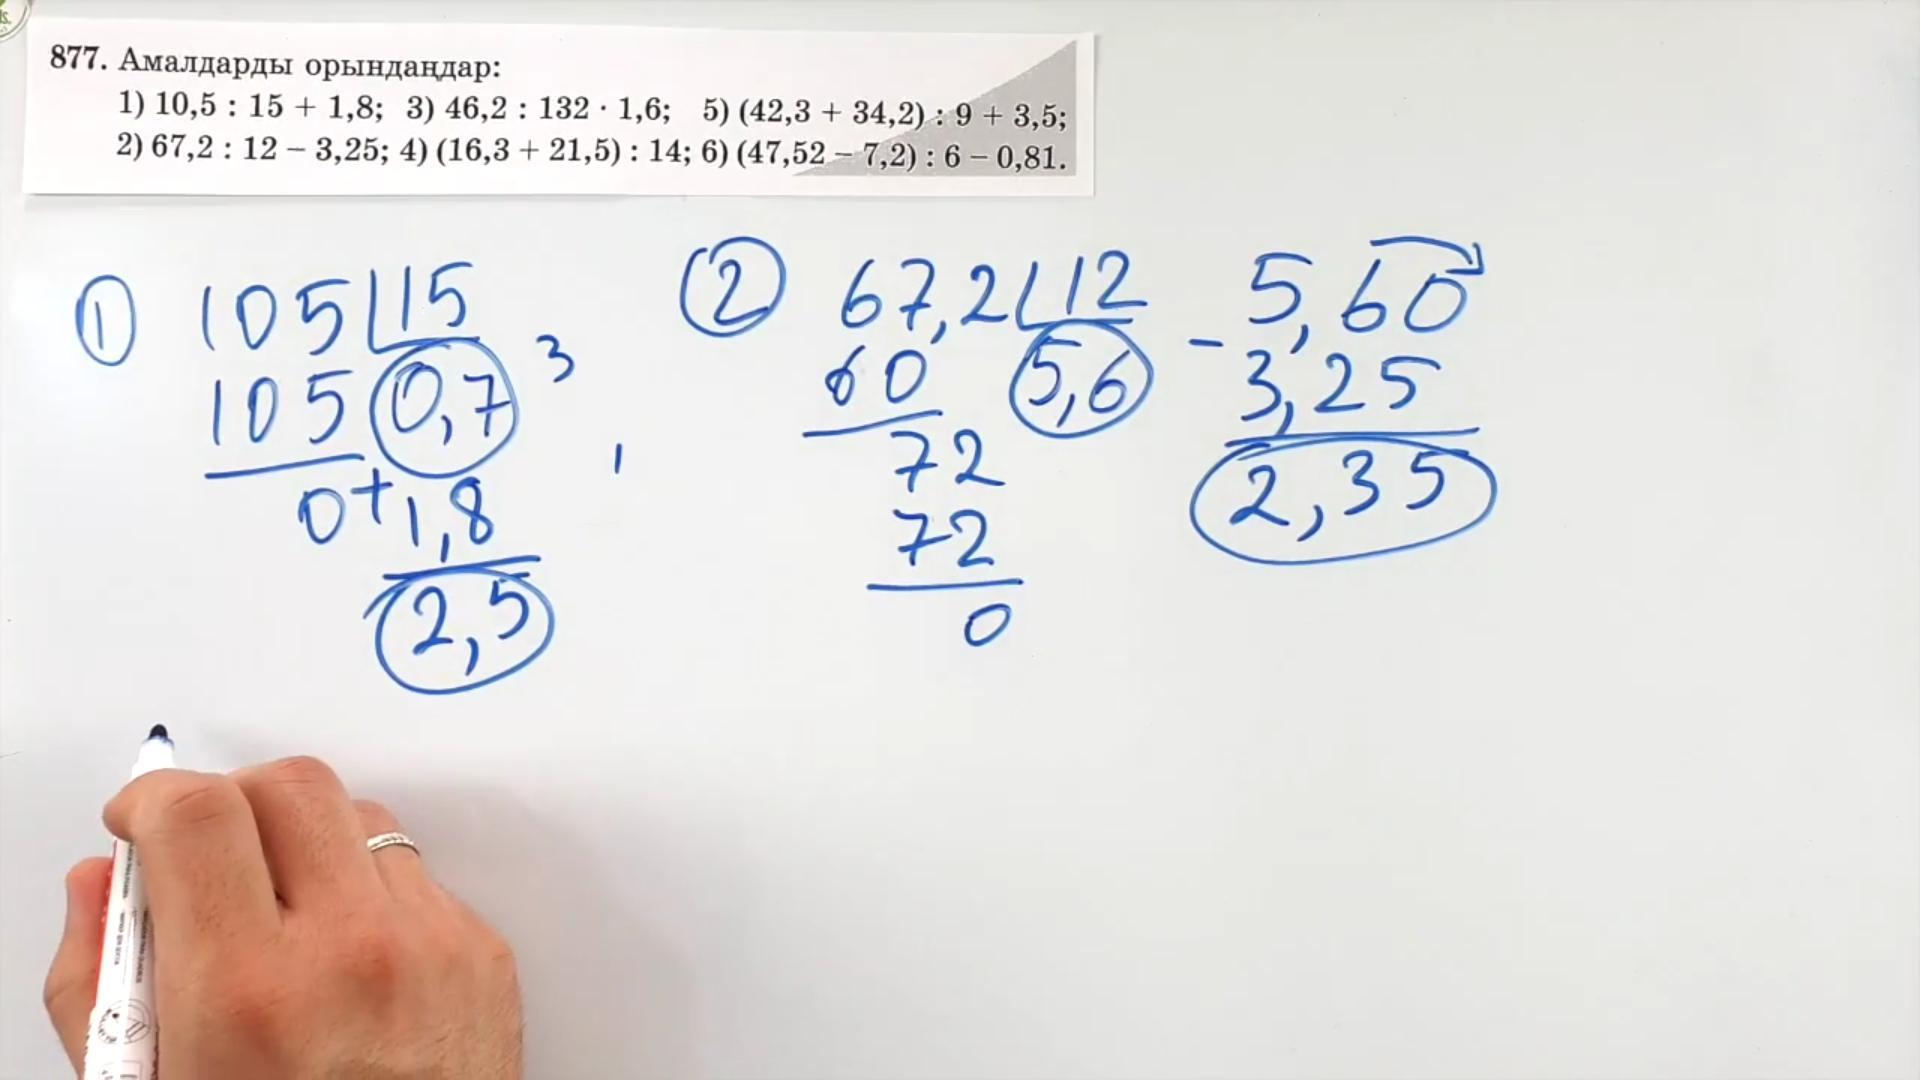 877. Амалдарды орындаңдар:
1) 10,5 : 15 + 1,8; 3) 46,2 : 132 · 1,6; 5) (42,3 + 34,2) : 9 + 3,5;
2) 67,2 : 12 – 3,25; 4) (16,3 + 21,5) : 14; 6) (47,52 – 7,2) : 6 – 0,81.
1 105 15
105 0,7 3
0 + 1,8
2,5
2 67,2 12
60 5,6
72
72
0
5,60
- 3,25
2,35